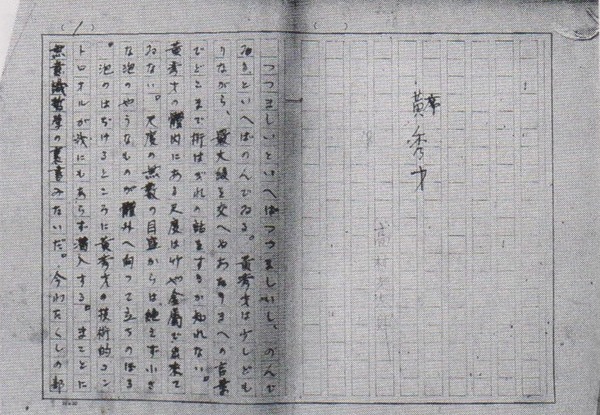 序
黄秀才
高村光太郎
(1)
つつましいといへばつつましいし、のんで
ゐるといへばのんでゐる。黄秀才は少しども
りながら、最大級を交へたあたりまへの言葉
でどこまで桁はづれの話をするか知れない。
黄秀才の體内にある尺度は竹や金屬で出来て
ゐない。尺度の無數の目盛からは絶えず小さ
な泡のやうなものが體外へ向つて立ちのぼる
。泡のはぢけるところに黄秀才の技術的コン
トロオルが我にもあらず潜入する。まことに
無意識哲學の裏書みたいだ。今わたくしの部